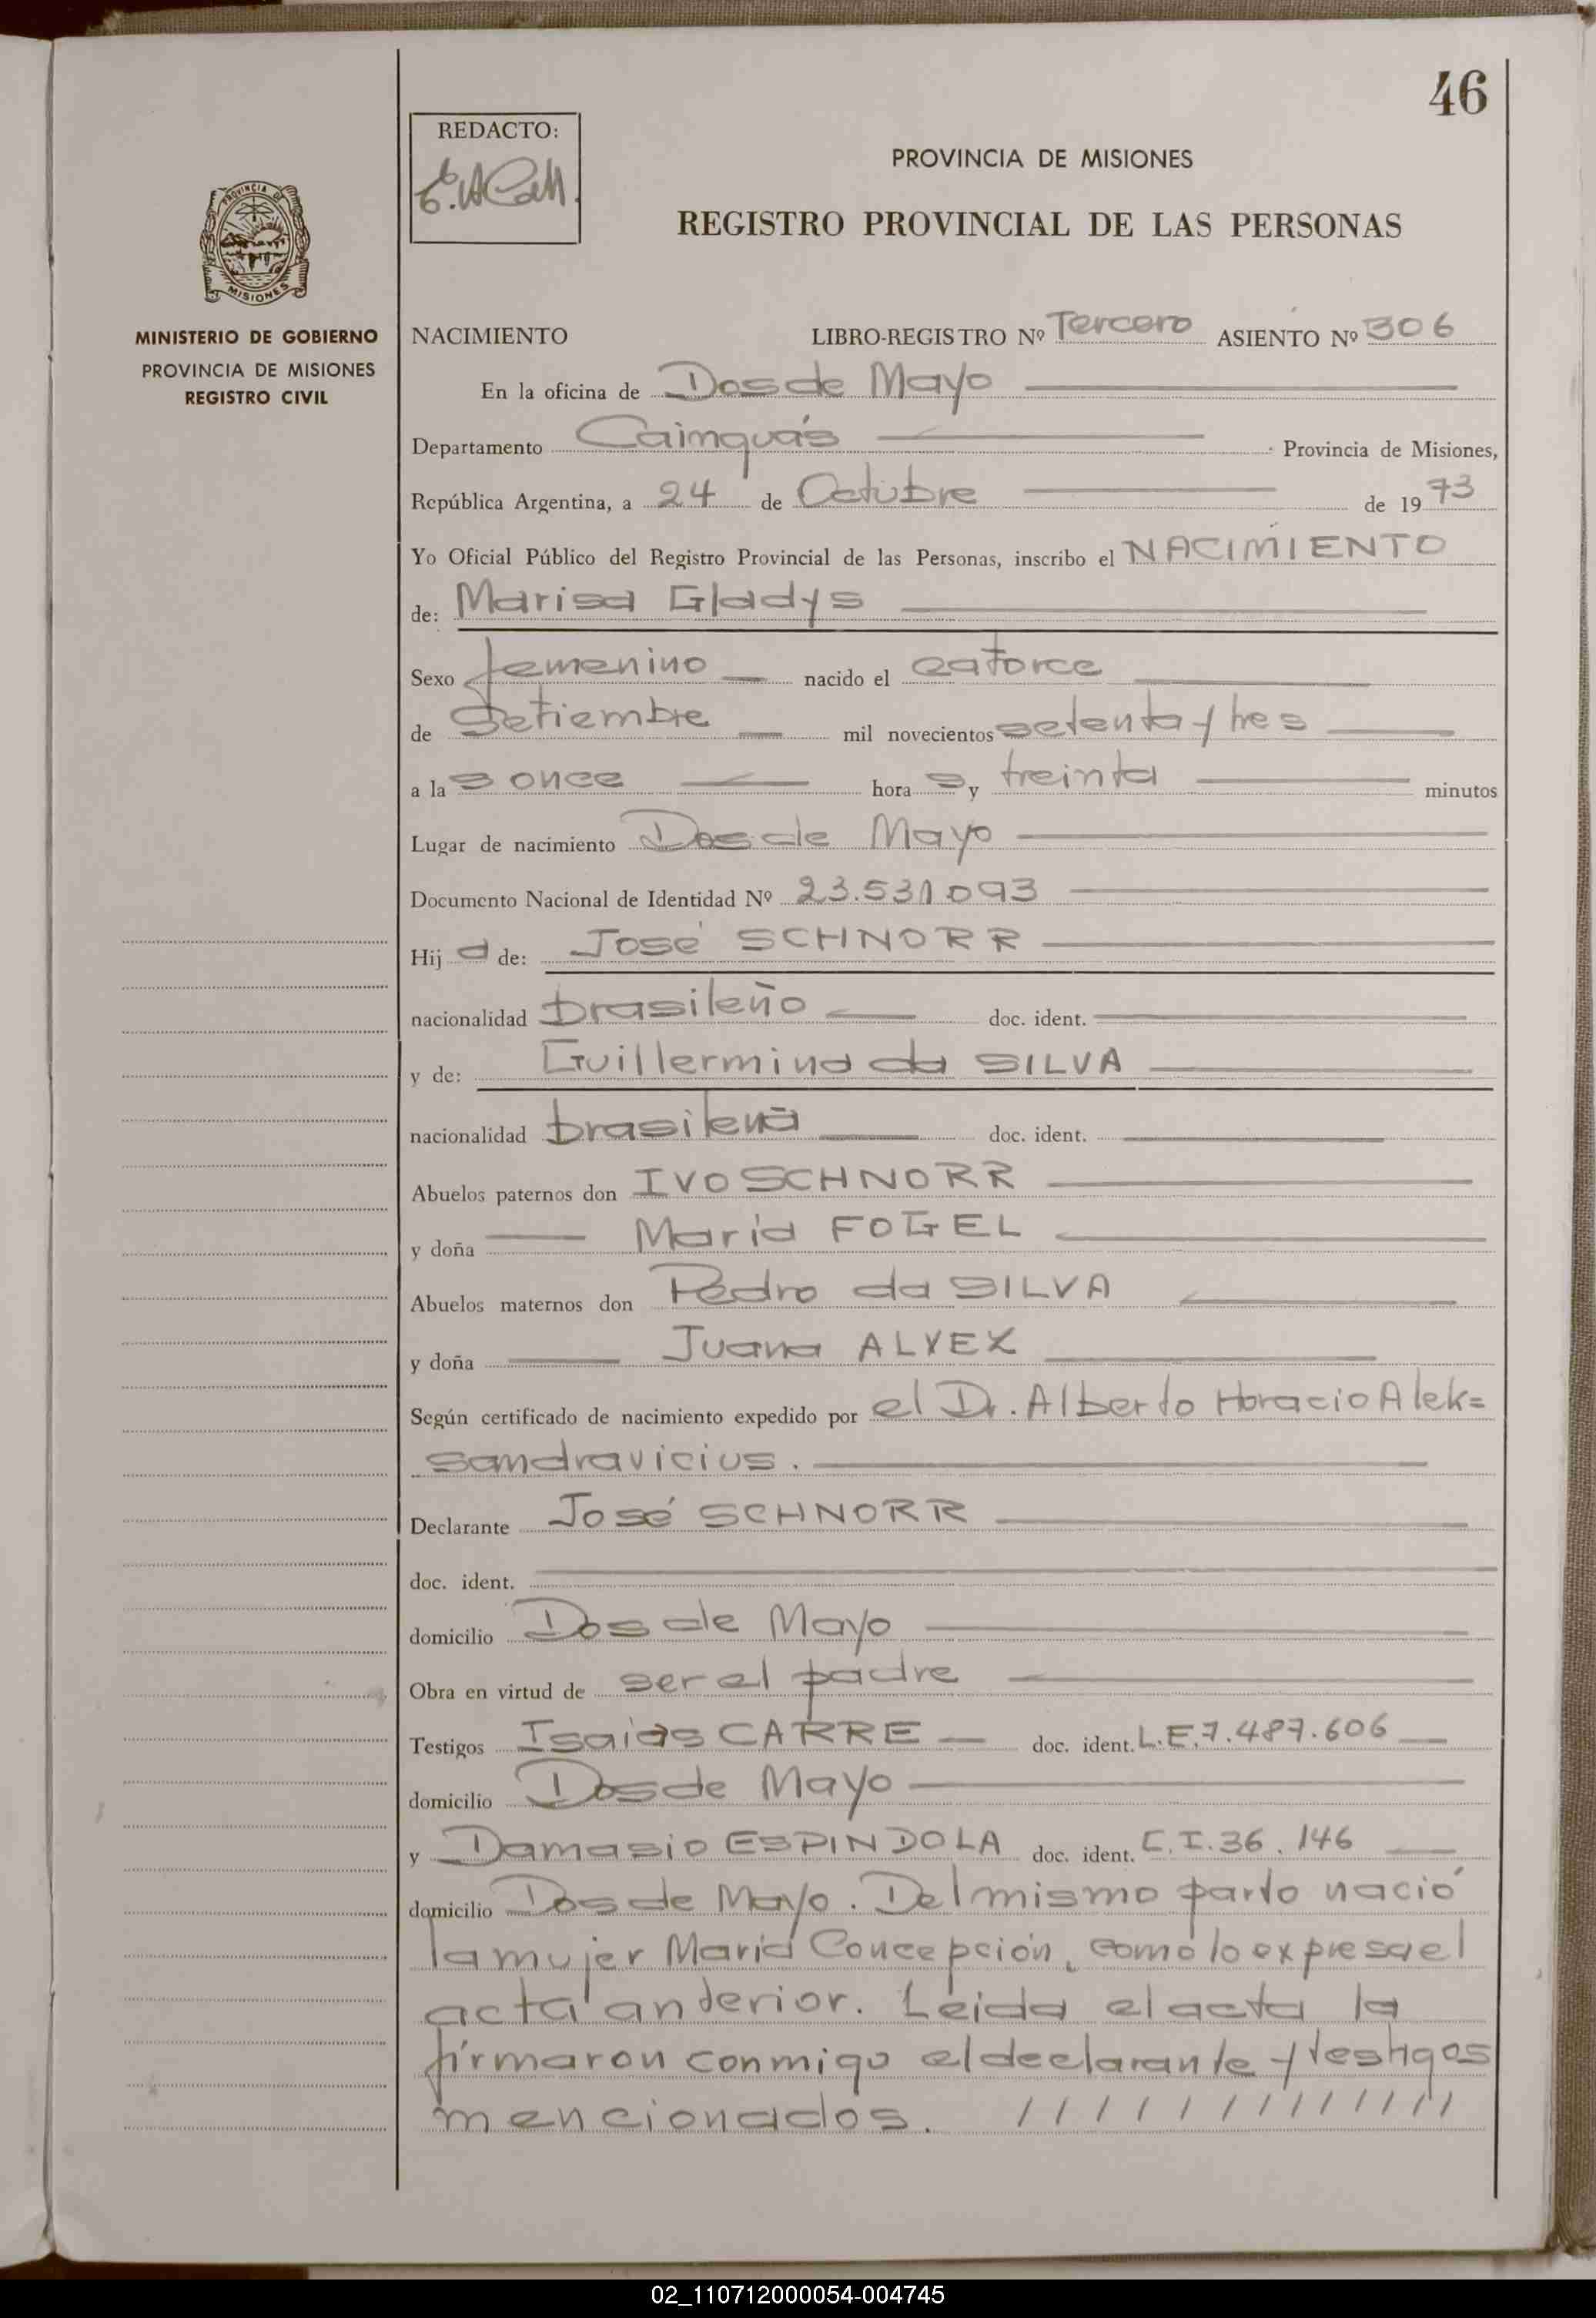 46
REDACTO:
PROVINCIA DE MISIONES
REGISTRO PROVINCIAL DE LAS PERSONAS
PROVINCIA DE
MISIONES
MINISTERIO DE GOBIERNO
PROVINCIA DE MISIONES
REGISTRO CIVIL
NACIMIENTO LIBRO-REGISTRO Nº Tercero ASIENTO Nº 306
En la oficina de Dos de Mayo
Departamento Cainguás Provincia de Misiones,
República Argentina, a 24 de Octubre de 1973
Yo Oficial Público del Registro Provincial de las Personas, inscribo el NACIMIENTO
de: Marisa Gladys
Sexo femenino nacido el catorce
de Setiembre mil novecientos setenta y tres
a las once horas y treinta minutos
Lugar de nacimiento Dos de Mayo
Documento Nacional de Identidad Nº 23.531.093
Hija de: José SCHNORR
nacionalidad brasileño doc. ident.
y de: Guillermina da SILVA
nacionalidad brasileña doc. ident.
Abuelos paternos don IVO SCHNORR
y doña María FOGEL
Abuelos maternos don Pedro da SILVA
y doña Juana ALVEZ
Según certificado de nacimiento expedido por el Dr. Alberto Horacio Alek=
sandravicius.
Declarante José SCHNORR
doc. ident.
domicilio Dos de Mayo
Obra en virtud de ser el padre
Testigos Isaias CARRE doc. ident. L.E.7.487.606
domicilio Dos de Mayo
y Damasio ESPINDOLA doc. ident. C.I.36.146
domicilio Dos de Mayo. Del mismo parto nació
la mujer María Concepción, como lo expresa el
acta anterior. Leida el acta la
firmaron conmigo el declarante y testigos
mencionados. / / / / / / / / / / / / /
02_110712000054-004745